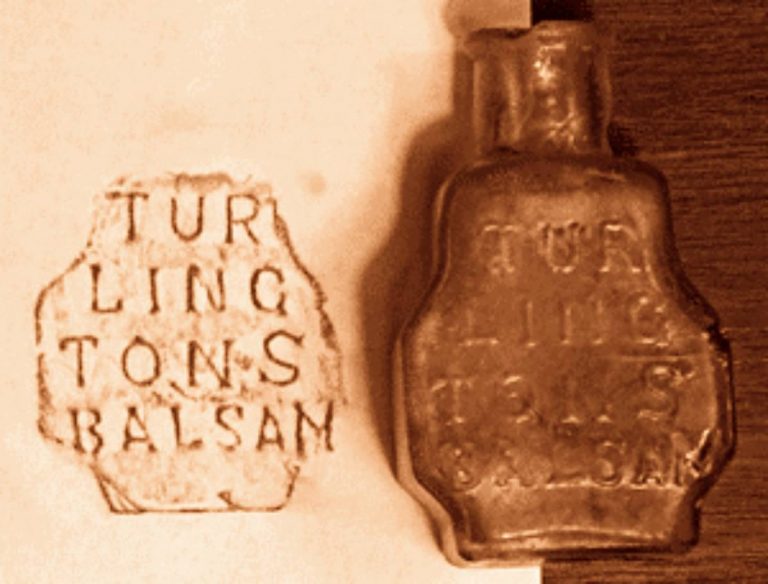 TUR
LING
TONS
BALSAM
TUR
LING
TONS
BALSAM